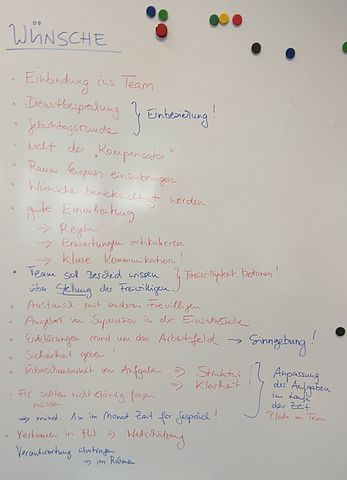 WÜNSCHE
• Einbindung ins Team
• Dienstbesprechung } Einbeziehung!
• Geburtstagsrunde
• nicht der "Kompensator"
• Raum Eigenes einzubringen
• Wünsche berücksichtigt werden
• gute Einarbeitung
→ Regeln
→ Erwartungen artikulieren
→ Klare Kommunikation!
• Team soll Bescheid wissen } Freiwilligkeit betonen!
über Stellung der Freiwilligen
• Austausch mit anderen Freiwilligen
• Angebot von Supervision in der Einsatzstelle
• Erklärungen rund um das Arbeitsfeld → Sinngebung!
• Sicherheit geben!
• Überschaubarkeit von Aufgaben ⇒ Struktur
⇒ Klarheit!
} Anpassung
der Aufgaben
im Laufe
der Zeit
Platz im Team
• FW sollten nicht ständig fragen
müssen
→ mind. 1x im Monat Zeit für Gespräch!
• Vertrauen in FW ⇒ Wertschätzung
Verantwortung übertragen
→ im Rahmen